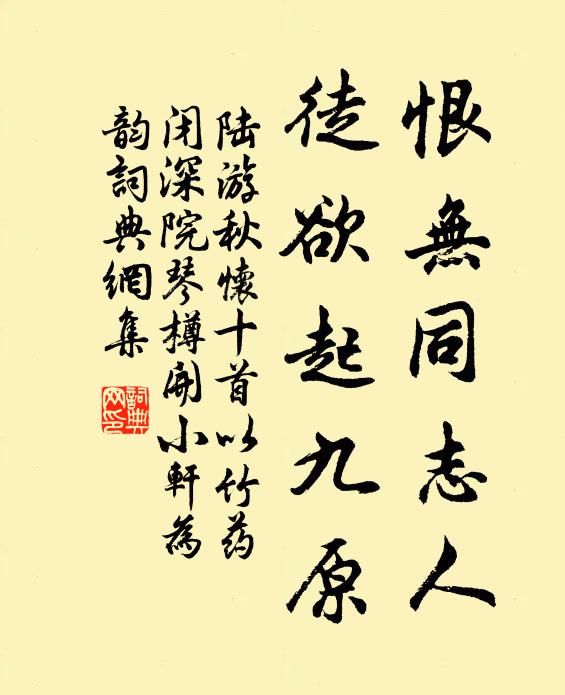 恨無同志人
徒欲起九原
陆游秋懷十首以竹药
闭深院琴樽開小軒為
韵詞典網集
詞典网印